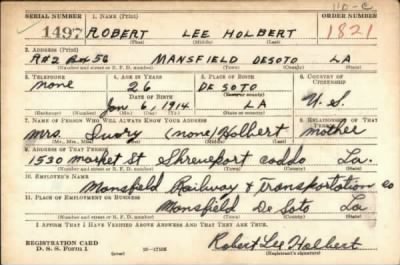 110-C
SERIAL NUMBER 1. NAME (Print) ORDER NUMBER
1497 ROBERT LEE HOLBERT 1821
(First) (Middle) (Last)
2. ADDRESS (Print)
R#2 Box 56 MANSFIELD DESOTO LA
(Number and street or R. F. D. number) (Town) (County) (State)
3. TELEPHONE 4. AGE IN YEARS 5. PLACE OF BIRTH 6. COUNTRY OF CITIZENSHIP
none 26 DE SOTO
DATE OF BIRTH (Town or county)
Jan 6, 1914 LA U.S.
(Exchange) (No.) (Mo.) (Day) (Yr.) (State or country)
7. NAME OF PERSON WHO WILL ALWAYS KNOW YOUR ADDRESS 8. RELATIONSHIP OF THAT PERSON
Mrs. Ivory (none) Holbert mother
(Mr., Mrs., Miss) (First) (Middle) (Last)
9. ADDRESS OF THAT PERSON
1530 market St Shreveport caddo La.
(Number and street or R. F. D. number) (Town) (County) (State)
10. EMPLOYER'S NAME
Mansfield Railway & Transportation co
11. PLACE OF EMPLOYMENT OR BUSINESS
Mansfield De Soto La
(Number and street or R. F. D. number) (Town) (County) (State)
I AFFIRM THAT I HAVE VERIFIED ABOVE ANSWERS AND THAT THEY ARE TRUE.
REGISTRATION CARD
D. S. S. Form 1 Robert Lee Holbert
(over) (Registrant's signature)